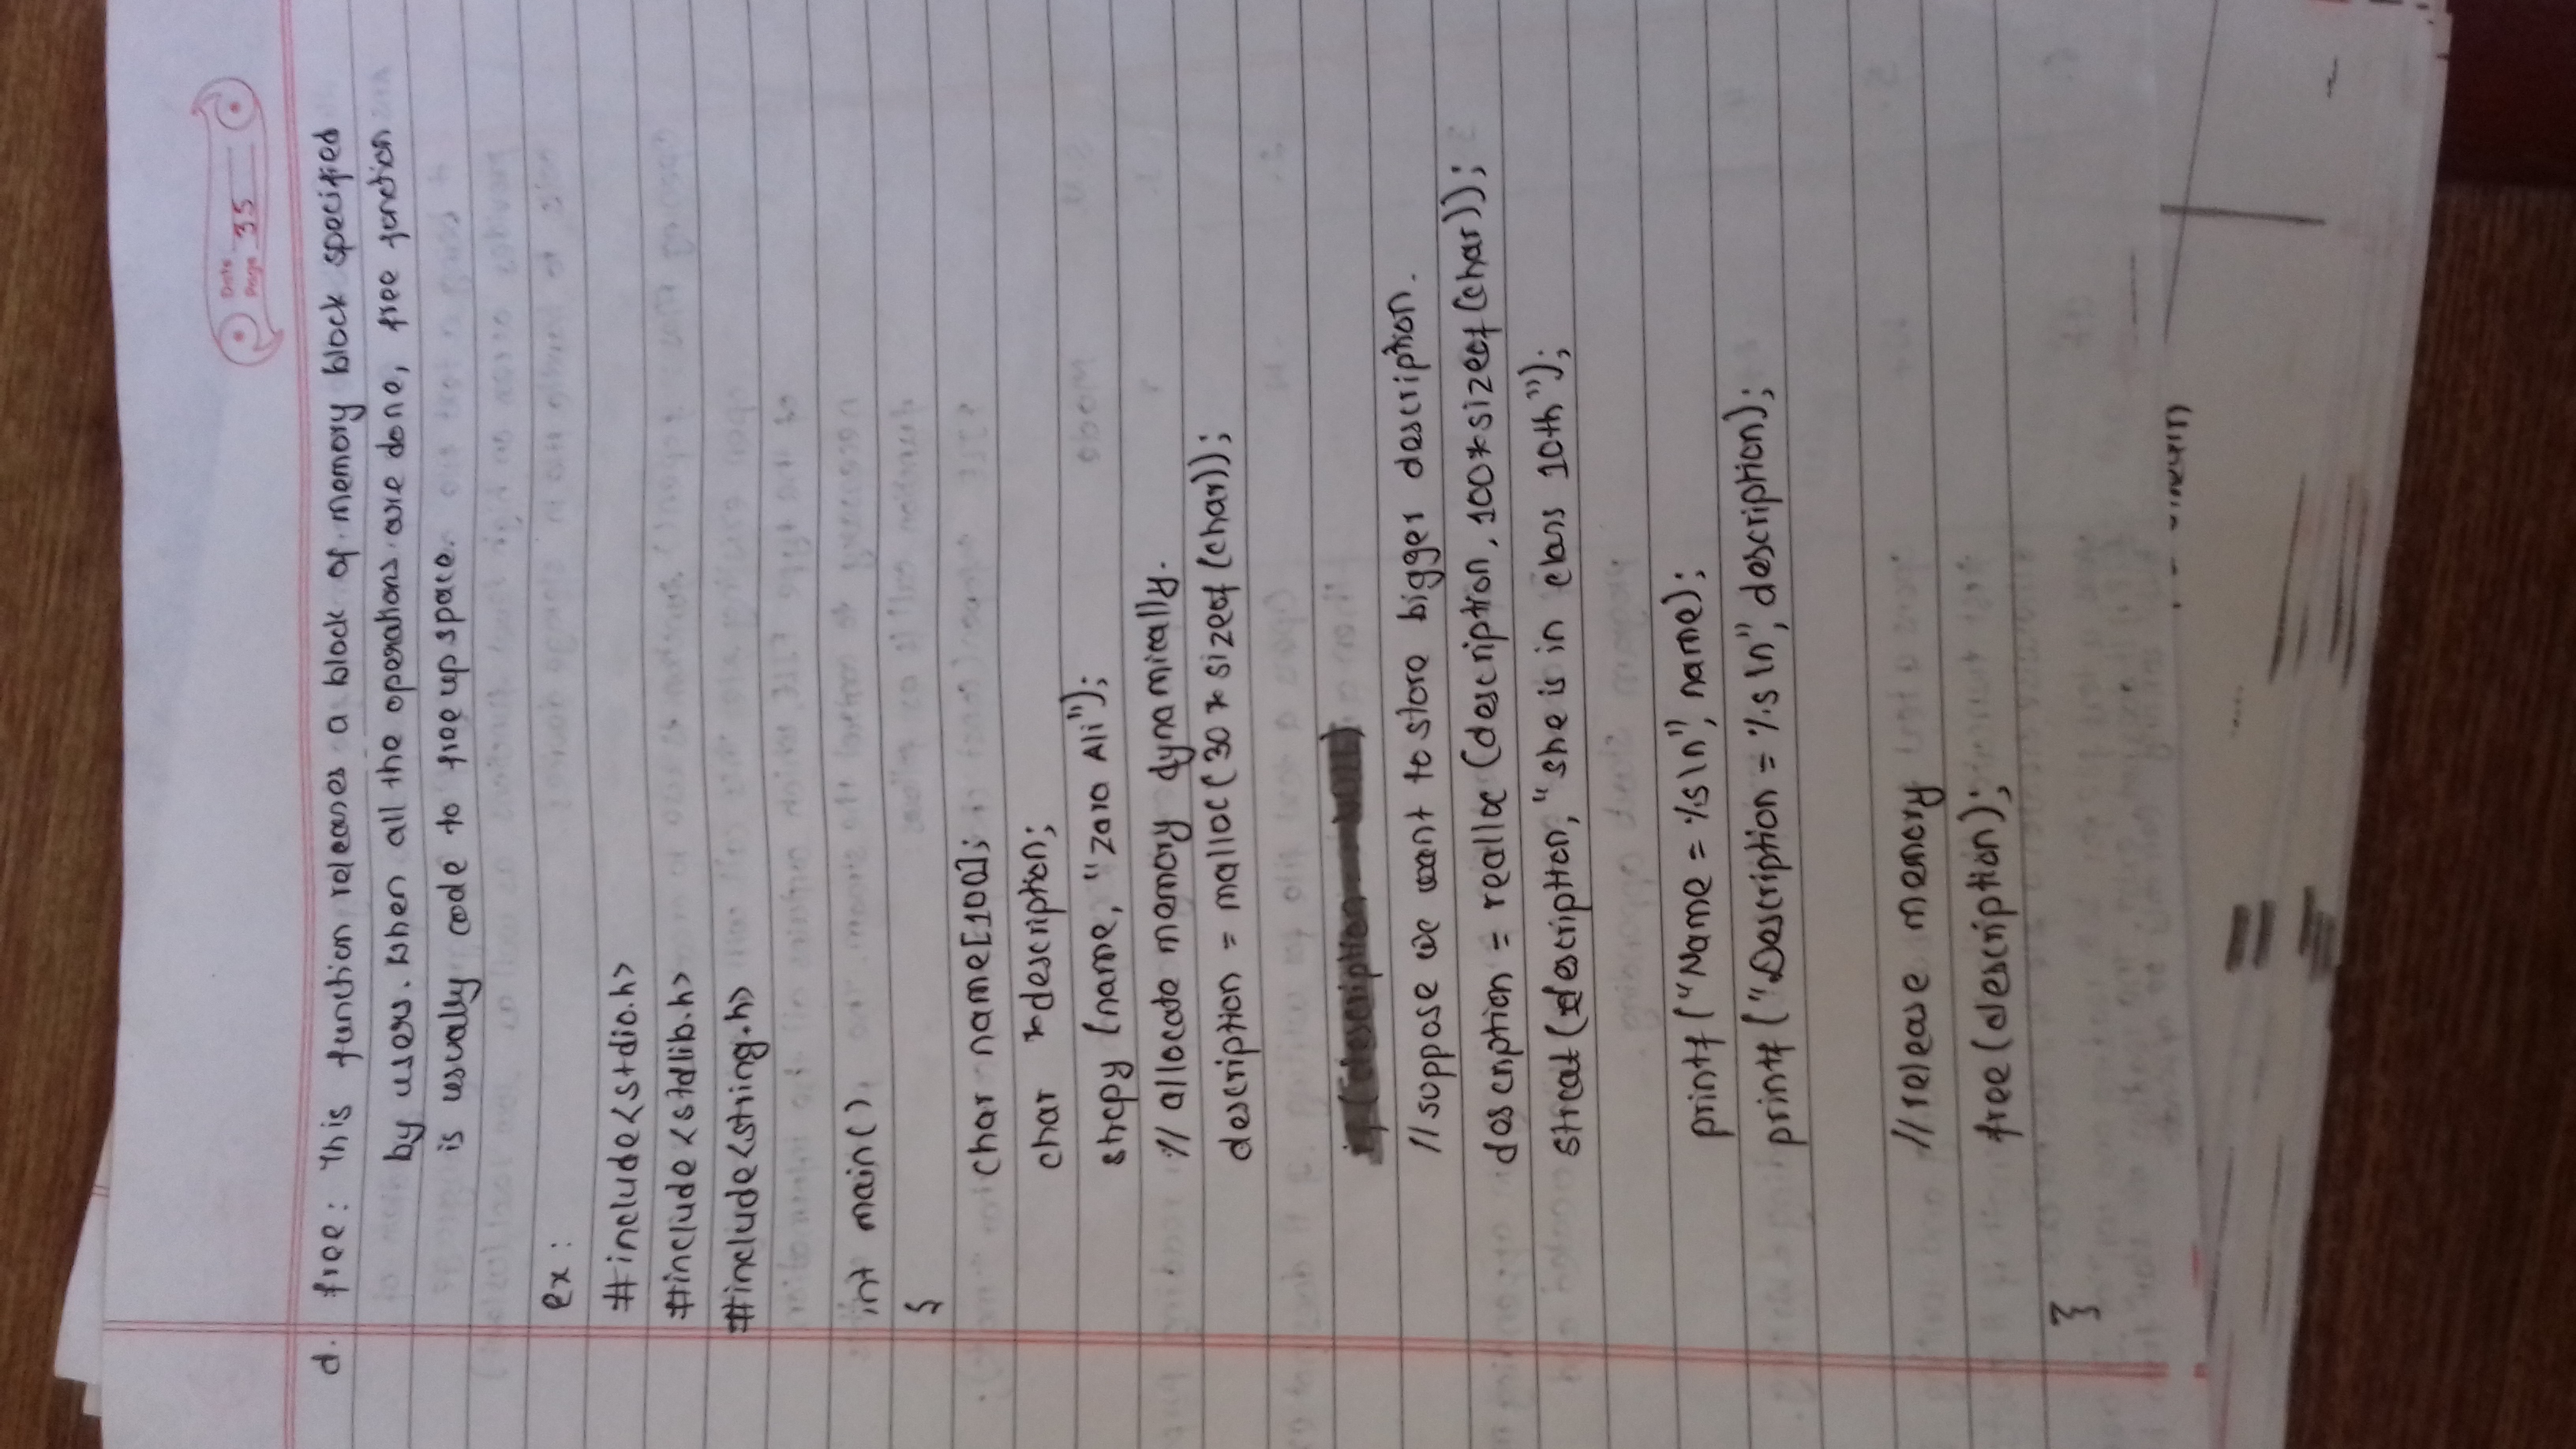 Date
Page 35
d. free: This function releases a block of memory block specified
by users. when all the operations are done, free function
is usually code to free up space.
ex:
#include<stdio.h>
#include<stdlib.h>
#include<string.h>
int main()
{
char name[100];
char *description;
strcpy (name, "Zara Ali");
// allocate memory dynamically.
description = malloc(30*sizeof(char));
//suppose we want to store bigger description.
description = realloc (description, 100*sizeof(char));
strcat (description, "she is in class 10th");
printf ("Name = %s\n", name);
printf ("Description = %s\n", description);
//release memory
free(description);
}